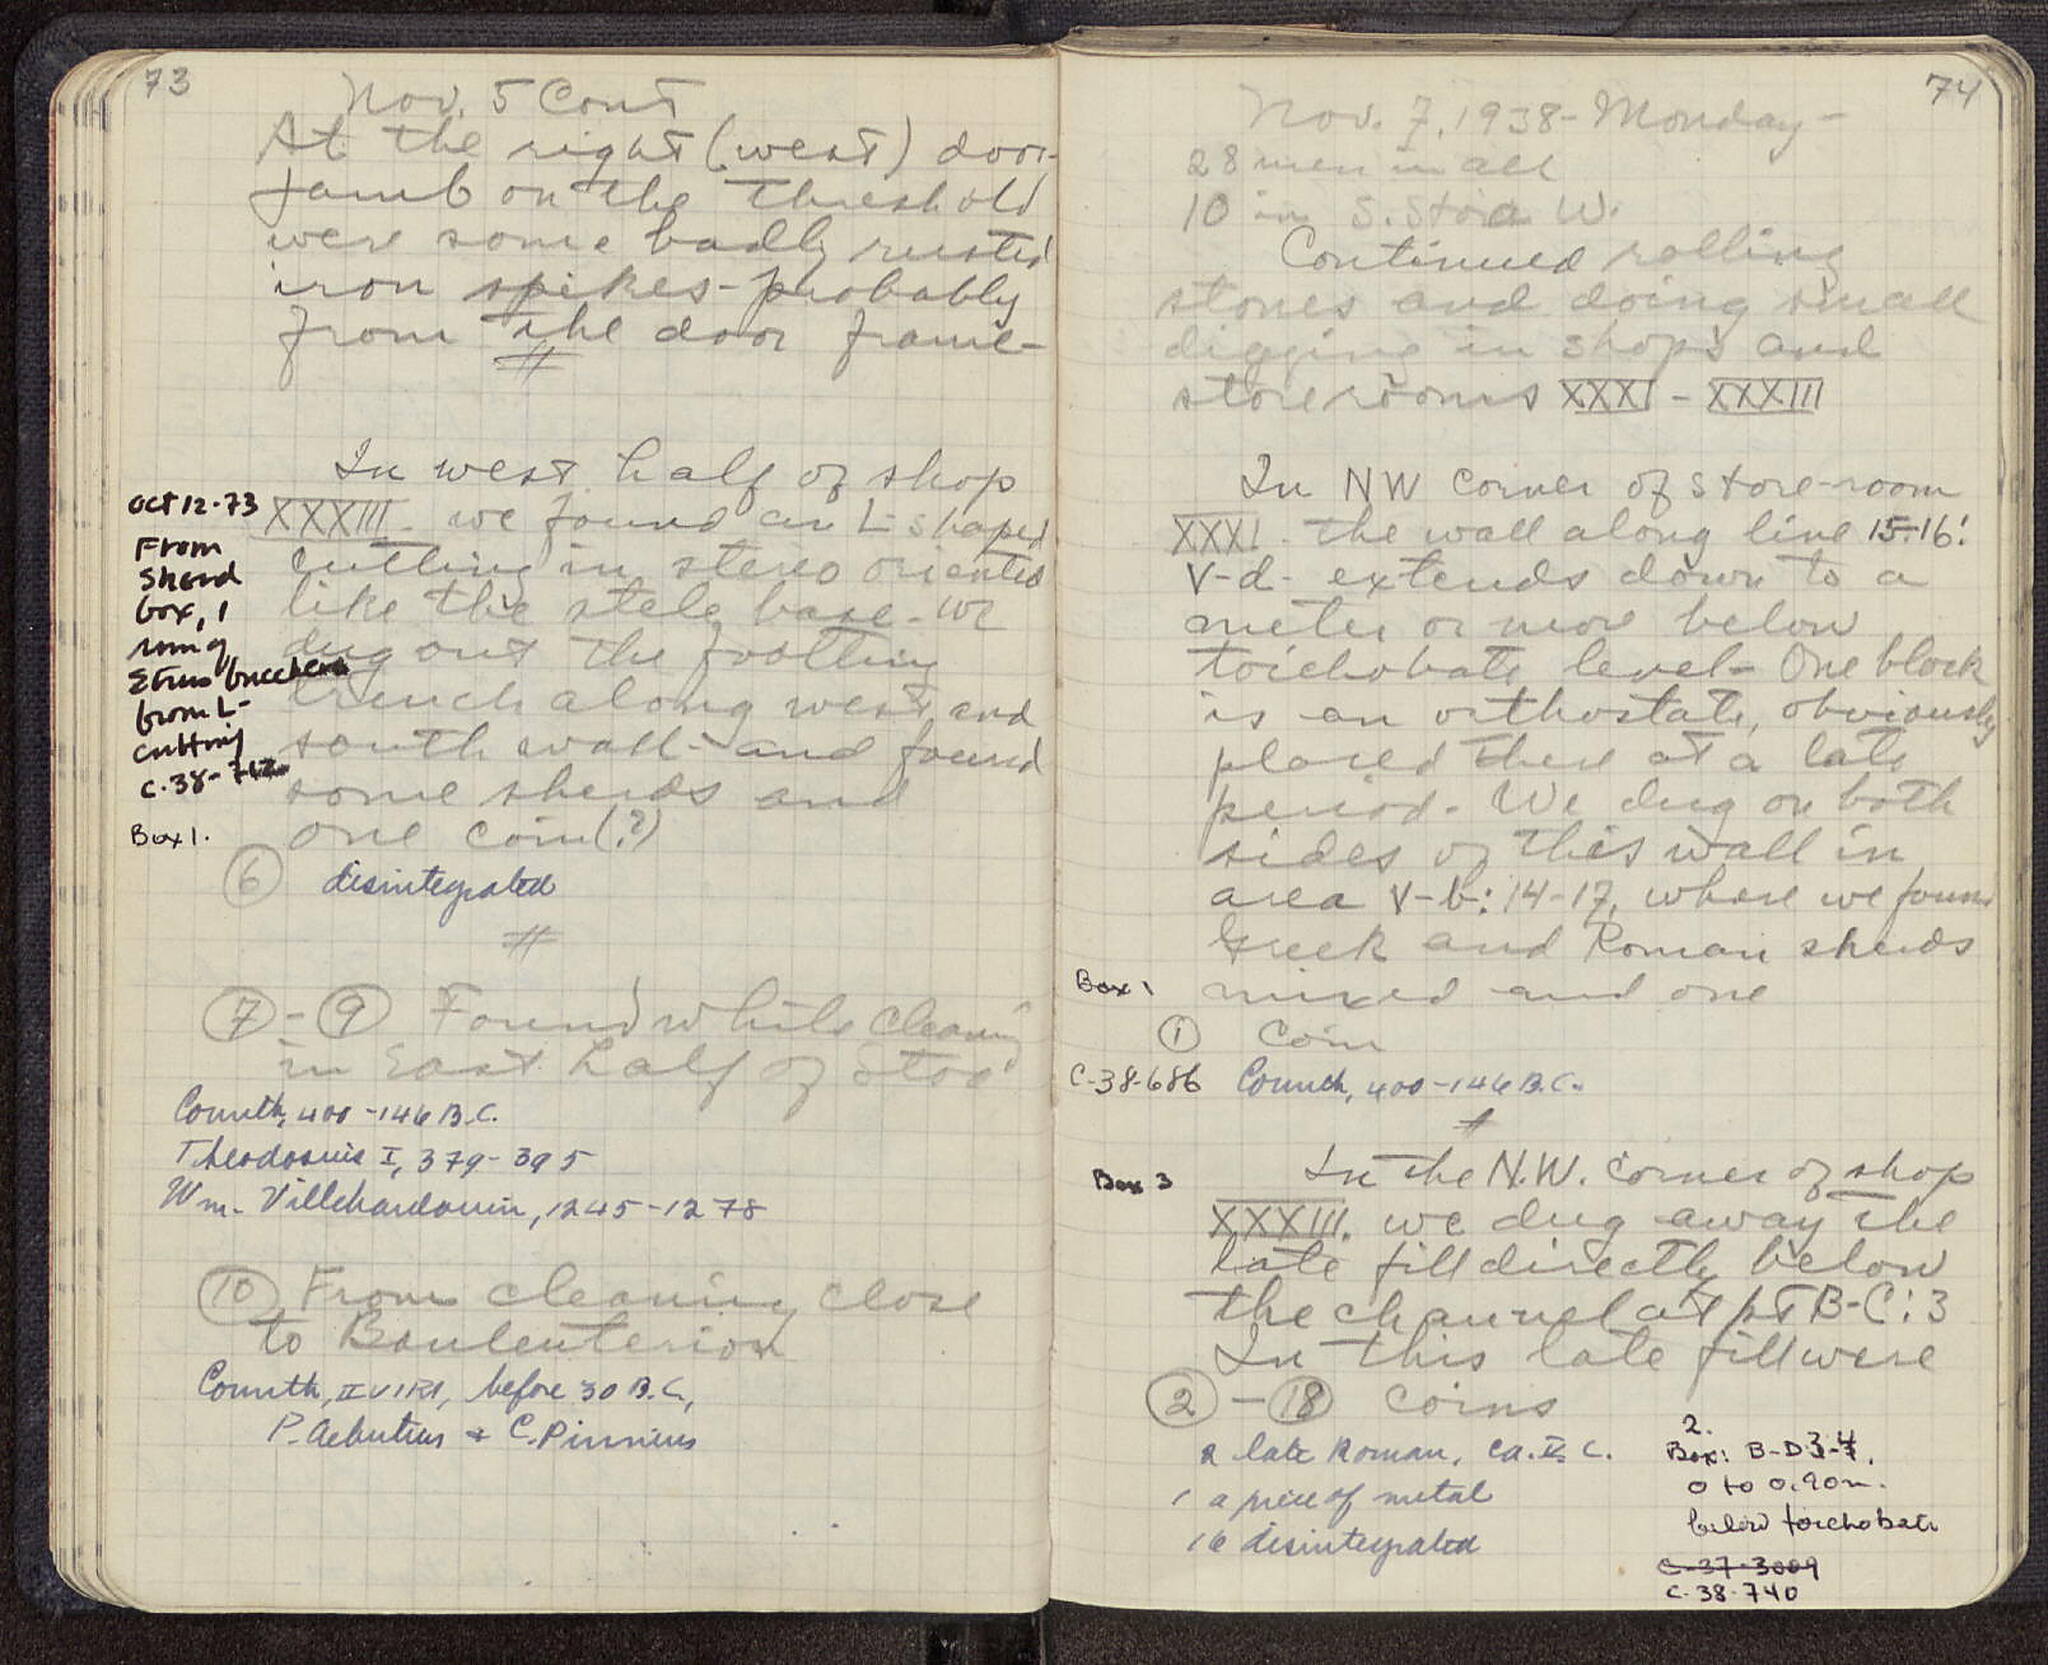 73
Nov. 5 Cont
At the right (west) door-
jamb on the threshold
were some badly rusted
iron spikes - probably
from the door frame -
#
In west half of shop
XXXIII. we found an L-shaped
cutting in stereo oriented
like the stele base. We
dug out the footing
trench along west and
south wall - and found
some sherds and
one coin (?)
OCT 12-73
From
Sherd
box, 1
ring
Etrus bucchero
from L-
cutting
C-38-742
Box 1.
6 disintegrated
#
7 - 9 Found while cleaning
in East half of Stoa
Corinth, 400-146 B.C.
Theodosius I, 379-395
Wm. Villehardouin, 1245-1278
10 From cleaning close
to Bouleuterion
Corinth, II VIRI, before 30 B.C.,
P. Aebutius + C. Pinnius
74
Nov. 7, 1938 - Monday -
28 men in all
10 in S. Stoa W.
Continued rolling
stones and doing small
digging in shops and
storerooms XXXI - XXXIII
In NW corner of store-room
XXXI. the wall along line 15-16:
V-d- extends down to a
meter or more below
toichobate level - One block
is an orthostate, obviously
placed there at a late
period. We dug on both
sides of this wall in
area V-b: 14-17, where we found
Greek and Roman sherds
Box 1 mixed and one
1 Coin
C-38-686 Corinth, 400-146 B.C.
#
Box 3 In the N.W. corner of shop
XXXIII. we dug away the
late fill directly below
the channel at pt B-C: 3
In this late fill were
2 - 18 coins
2 late Roman, ca. V. C.
1 a piece of metal
16 disintegrated
2.
Box: B-D 3-4.
0 to 0.90m.
below toichobate
C-37-3009
C-38-740